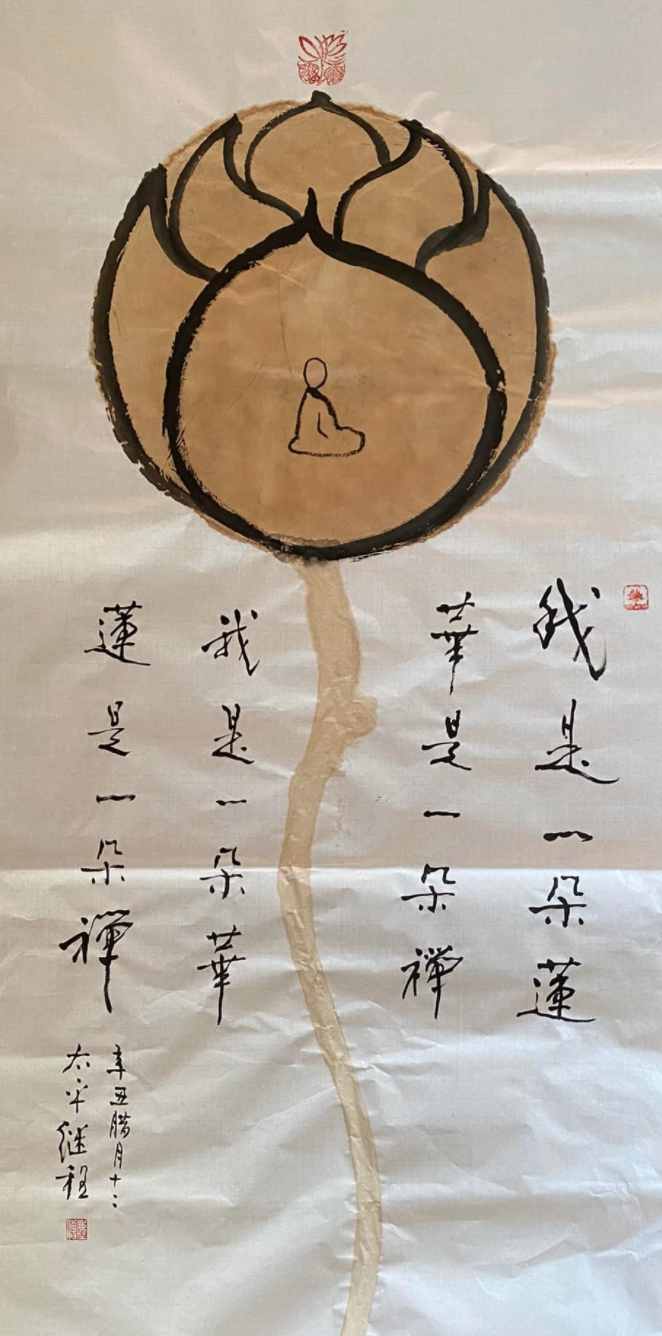 我是一朵蓮
華是一朵禪
我是一朵華
蓮是一朵禪
辛丑腊月十二
太平继程